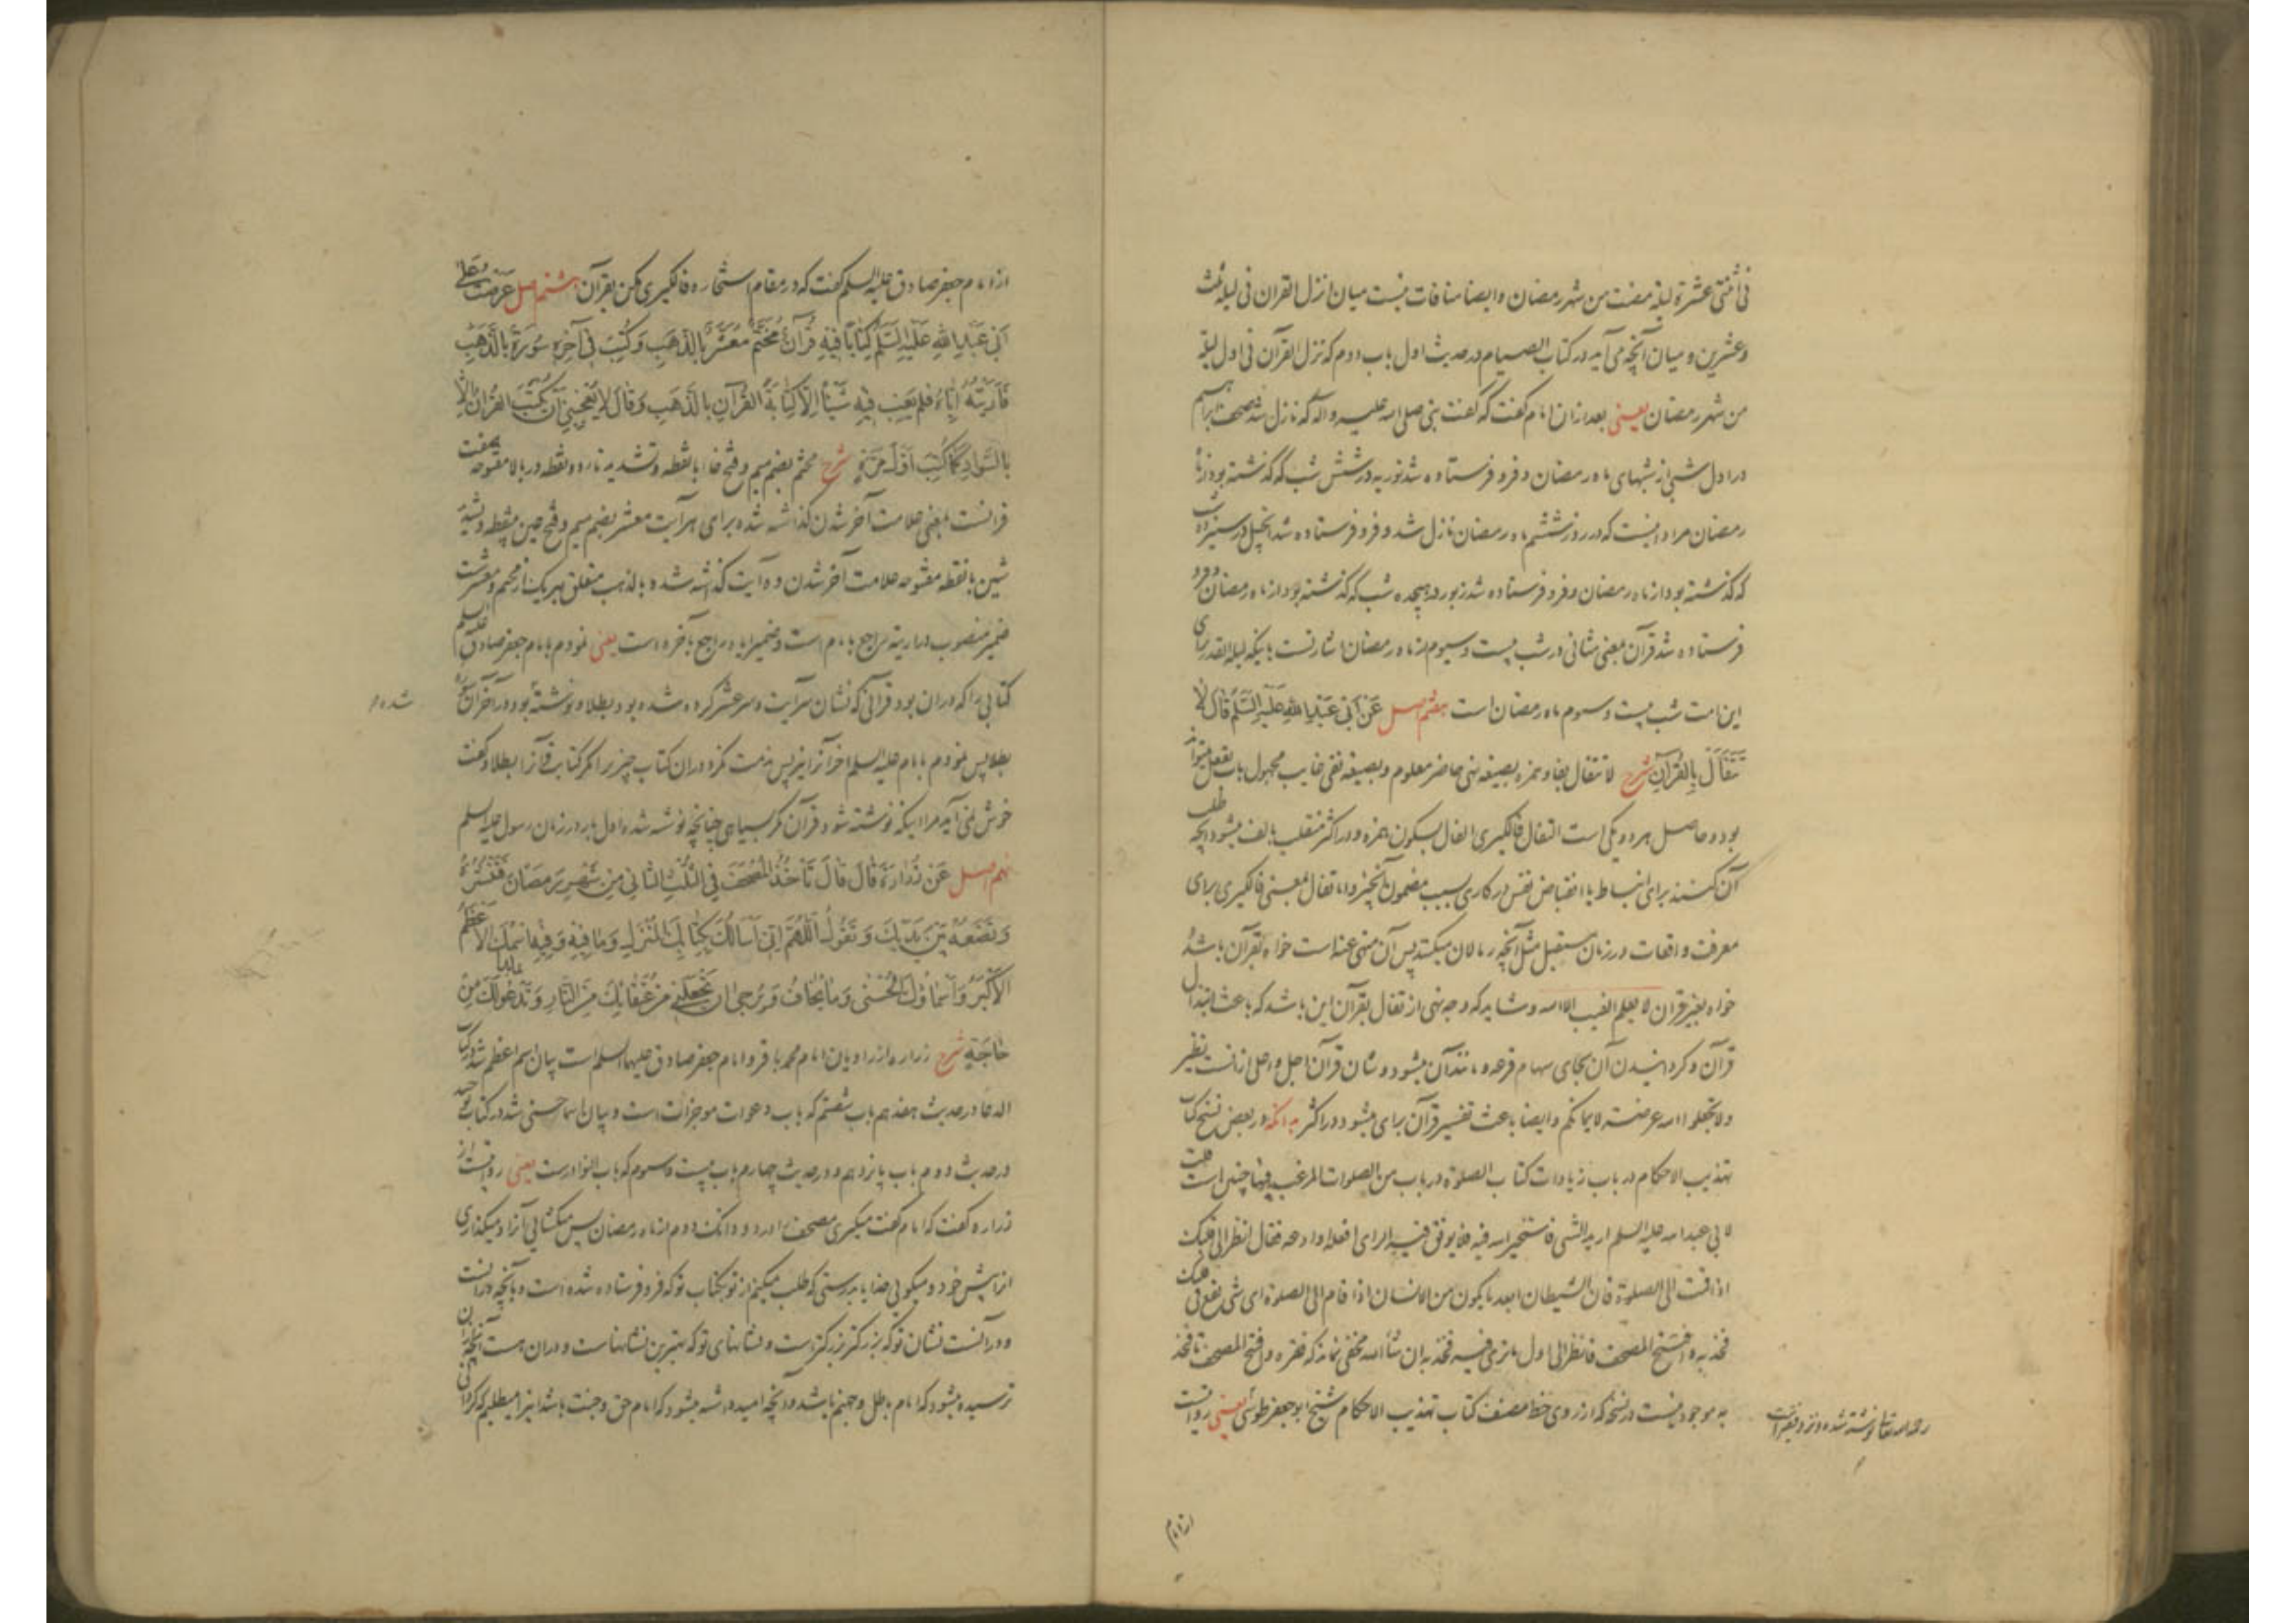 فی اثنتی عشرة لیلة مضت من شهر رمضان وایضا منافات نیست میان انزل القران فی لیلة ثلث
وعشرین و میان آنچه می آید در کتاب الصیام در حدیث اول باب دوم که نزل القرآن فی اول لیلة
من شهر رمضان یعنی بعد ازان امام گفت که گفت نبی صلی الله علیه و اله که نازل شد صحف ابراهیم
در اول شبی از شبهای ماه رمضان و فرو فرستاده شد توریه در شش شب که گذشته بود از ماه
رمضان مراد اینست که در روز ششم ماه رمضان نازل شد و فرو فرستاده شد انجیل در سیزده شب
که گذشته بود از ماه رمضان و فرو فرستاده شد زبور در هیجده شب که گذشته بود از ماه رمضان و فرو
فرستاده شد قرآن بمعنی مثانی در شب بیست و سیوم از ماه رمضان اشارتست باینکه لیلة القدر برای
این امت شب بیست و سیوم ماه رمضان است هفتم اصل عَنْ اَبی عَبْدِاللهِ عَلَیْهِ السَّلَم قَالَ لَا
تَتَفَأَّلْ بِالْقُرْآنِ شرح لا تتفال بفا و همزه بصیغه نهی حاضر معلوم و بصیغه نفی غایب مجهول باب تفعل میتواند
بود و حاصل هر دو یکی است التفال فالگیری الفال بسکون همزه و در اکثر منقلب بالف میشود آنچه طلب
آن کنند برای انبساط یا انقباض نفس در کاری بسبب مضمون آنچیز و اما تفال بمعنی فالگیری برای
معرفت واقعات در زمان مستقبل مثل آنچه رمالان میکنند پس آن منهی عنه است خواه بقرآن باشد
خواه بغیر قران لا یعلم الغیب الا الله و شاید که وجه نهی از تفال بقرآن این باشد که باعث ابتذال
قرآن و گردانیدن آن بجای سهام قرعه و مانند آن میشود و شان قرآن اجل و اعلی ازانست نظیر
ولا تجعلوا الله عرضة لایمانکم وایضا باعث تفسیر قرآن برای میشود در اکثر بدانکه در بعض نسخ کتاب
تهذیب الاحکام در باب زیادات کتاب الصلوة در باب من الصلوات المرغب فیها چنین است قلت
لابی عبد الله علیه السلم ارید الشی فاستخیر الله فیه فلا یوفق فیه الرای افعله او ادعه فقال انظر الی قلبک
اذا قمت الی الصلوة فان الشیطان ابعد ما یکون من الانسان اذا قام الی الصلوة ای شی یقع فی قلبک
فخذ به و افتتح المصحف فانظر الی اول ما تری فیه فخذ به ان شاء الله مخفی نماند که فقره و افتتح المصحف تا فخذ
به موجود نیست در نسخه که از روی خط مصنف کتاب تهذیب الاحکام شیخ ابو جعفر طوسی یعنی روایت
رحمه الله تعالی نوشته شده و نزد فقیر است
از امام
از امام جعفر صادق علیه السلم گفت که در مقام استخاره فالگیری مکن بقرآن هشتم اصل عَرَضْتُ عَلَی
اَبی عَبْدِاللهِ عَلَیْهِ السَّلَم کِتَاباً فِیهِ قُرآنٌ مُخَتَّمٌ مُعَشَّرٌ بِالذَّهَبِ وَکُتِبَ فِی آخِرِهِ سُورَةٌ بِالذَّهَبِ
فَاَرَیْتُهُ اِیَّاهُ فَلَم یَعِبْ فِیهِ شَیْئاً اِلَّا کِتَابَةَ الْقُرْآنِ بِالذَّهَبِ وَقَالَ لَا یُعْجِبُنِی اَنْ یُکْتَبَ الْقُرْآنُ اِلَّا
بِالسَّوَادِ کَمَا کُتِبَ اَوَّلَ مَرَّةٍ شرح مختم بضم میم و فتح خا با نقطه و تشدید تا دو نقطه در بالا مفتوحه صفت
قرانست بمعنی علامت آخر شدن گذاشته شده برای هر آیت معشر بضم میم و فتح عین بی نقطه و تشدید
شین با نقطه مفتوحه علامت آخر شدن ده آیت گذاشته شده بالذهب متعلق بهر یک از مختم و معشر است
ضمیر منصوب در اریته راجع بامام است و ضمیر ایاه راجع بآخره است یعنی نمودم بامام جعفر صادق علیه السلم
کتابی را که دران بود قرآنی که نشان سر آیت و سر عشر کرده شده بود بطلا و نوشته بود در آخر آن سوره
شده
بطلا پس نمودم بامام علیه السلم اخر آنرا نیز پس مذمت نکرد دران کتاب چیزی را مگر کتابت قرآن را بطلا و گفت
خوش نمی آید مرا اینکه نوشته شود قرآن مگر بسیاهی چنانچه نوشته شده اول بار در زمان رسول علیه السلم
نهم اصل عَنْ زُرَارَةَ قَالَ قَالَ تَأْخُذُ الْمُصْحَفَ فِی الثُّلُثِ الثَّانِی مِنْ شَهْرِ رَمَضَانَ فَتَنْشُرُهُ
وَتَضَعُهُ بَیْنَ یَدَیْکَ وَتَقُولُ اَللّٰهُمَّ اِنِّی اَسْأَلُکَ بِکِتَابِکَ الْمُنْزَلِ وَمَا فِیهِ وَفِیهِ اسْمُکَ الْاَعْظَمُ
الْاَکْبَرُ وَاَسْمَاؤُکَ الْحُسْنٰی وَمَا یُخَافُ وَیُرْجٰی اَنْ تَجْعَلَنِی مِنْ عُتَقَائِکَ مِنَ النَّارِ وَتَدْعُو بِمَا بَدَا لَکَ مِنْ
حَاجَةٍ شرح زراره از راویان امام محمد باقر و امام جعفر صادق علیهما السلم است بیان اسم اعظم شد در کتاب
الدعا در حدیث هفدهم باب شصتم که باب دعوات موجزات است و بیان اسماء حسنی شد در کتاب توحید
در حدیث دوم باب پانزدهم و در حدیث چهارم باب بیست و سیوم که باب النوادرست یعنی روایتست از
زراره گفت که امام گفت میگیری مصحف را در دو دانگ دوم از ماه رمضان پس میگشایی آنرا و میگذاری
انرا پیش خود و میگویی خدایا بدرستی که طلب میکنم از تو بکتاب تو که فرو فرستاده شده است و بآنچه در آنست
و در آنست نشان تو که بزرگتر بزرگتر است و نشانهای تو که بهترین نشانهاست و دران هست آنچه ازان
ترسیده میشود که امام باطل و جهنم باشد و آنچه امید داشته میشود که امام حق و جنت باشد اینرا میطلبم که گردانی